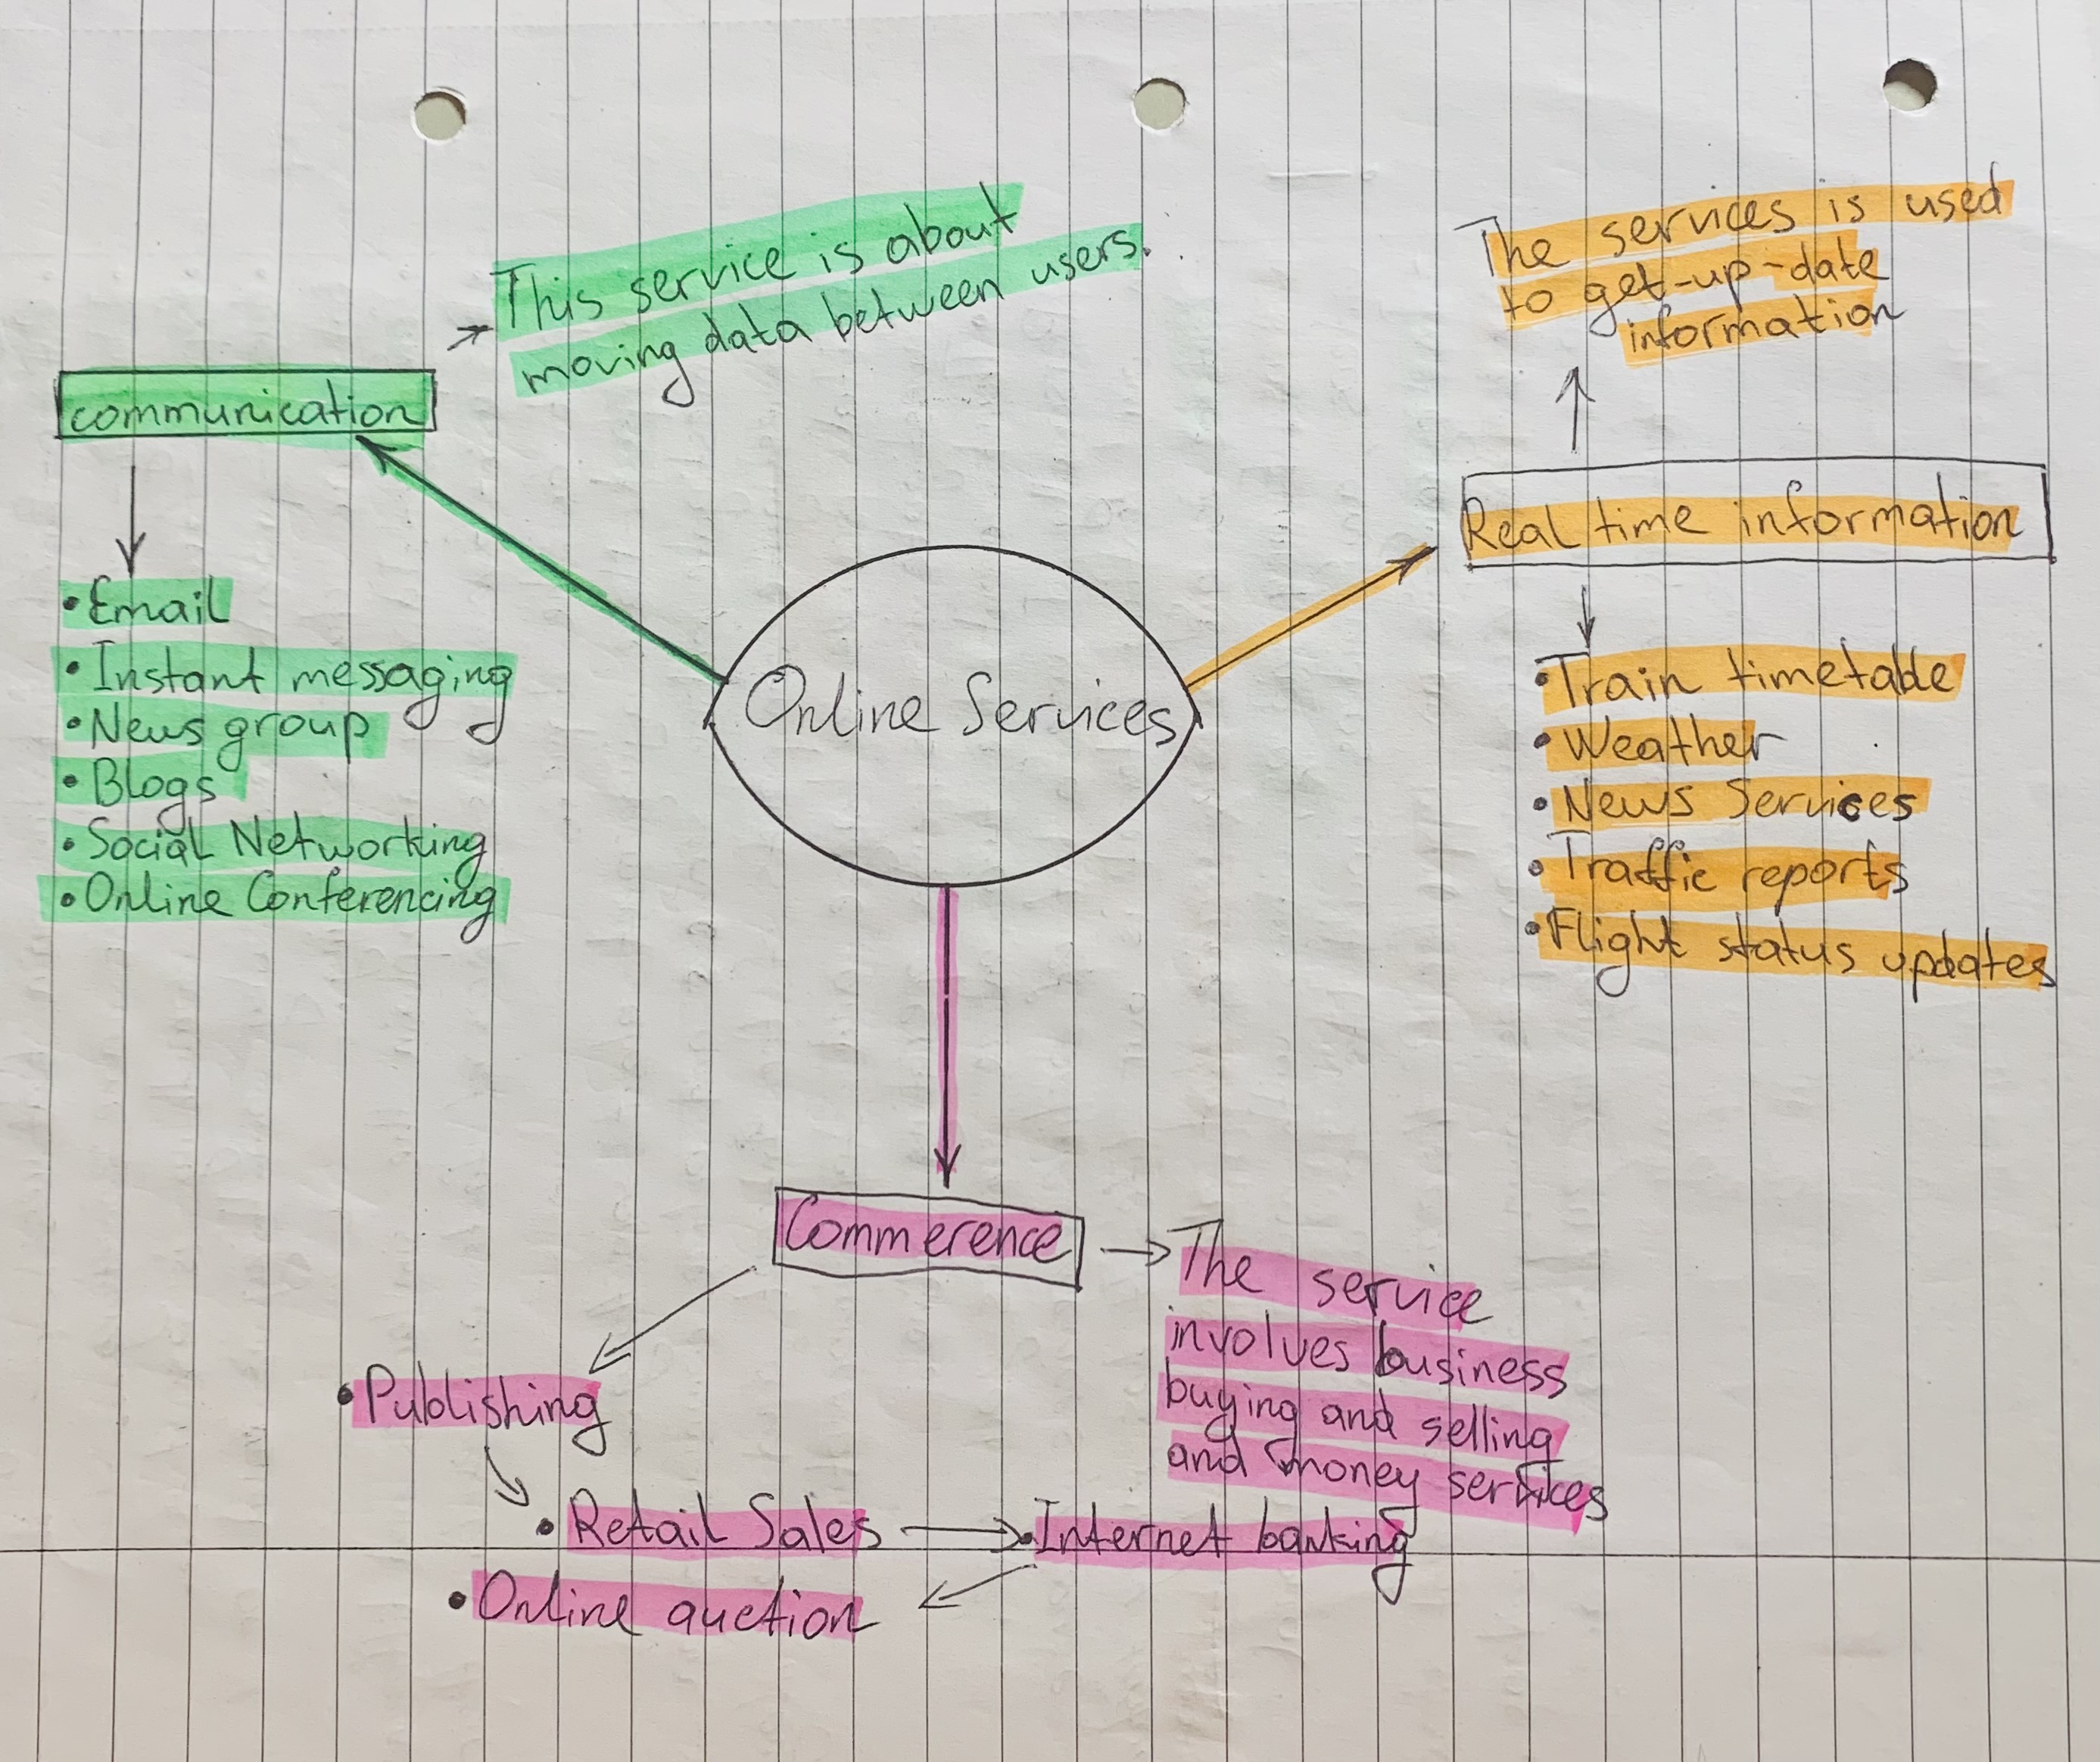 This service is about
moving data between users.
communication
• Email
• Instant messaging
• News group
• Blogs
• Social Networking
• Online Conferencing
Online Services
The services is used
to get-up-date
information
Real time information
• Train timetable
• Weather
• News Services
• Traffic reports
• Flight status updates
Commerence
The service
involves business
buying and selling
and money services
• Publishing
• Retail Sales
• Internet banking
• Online auction